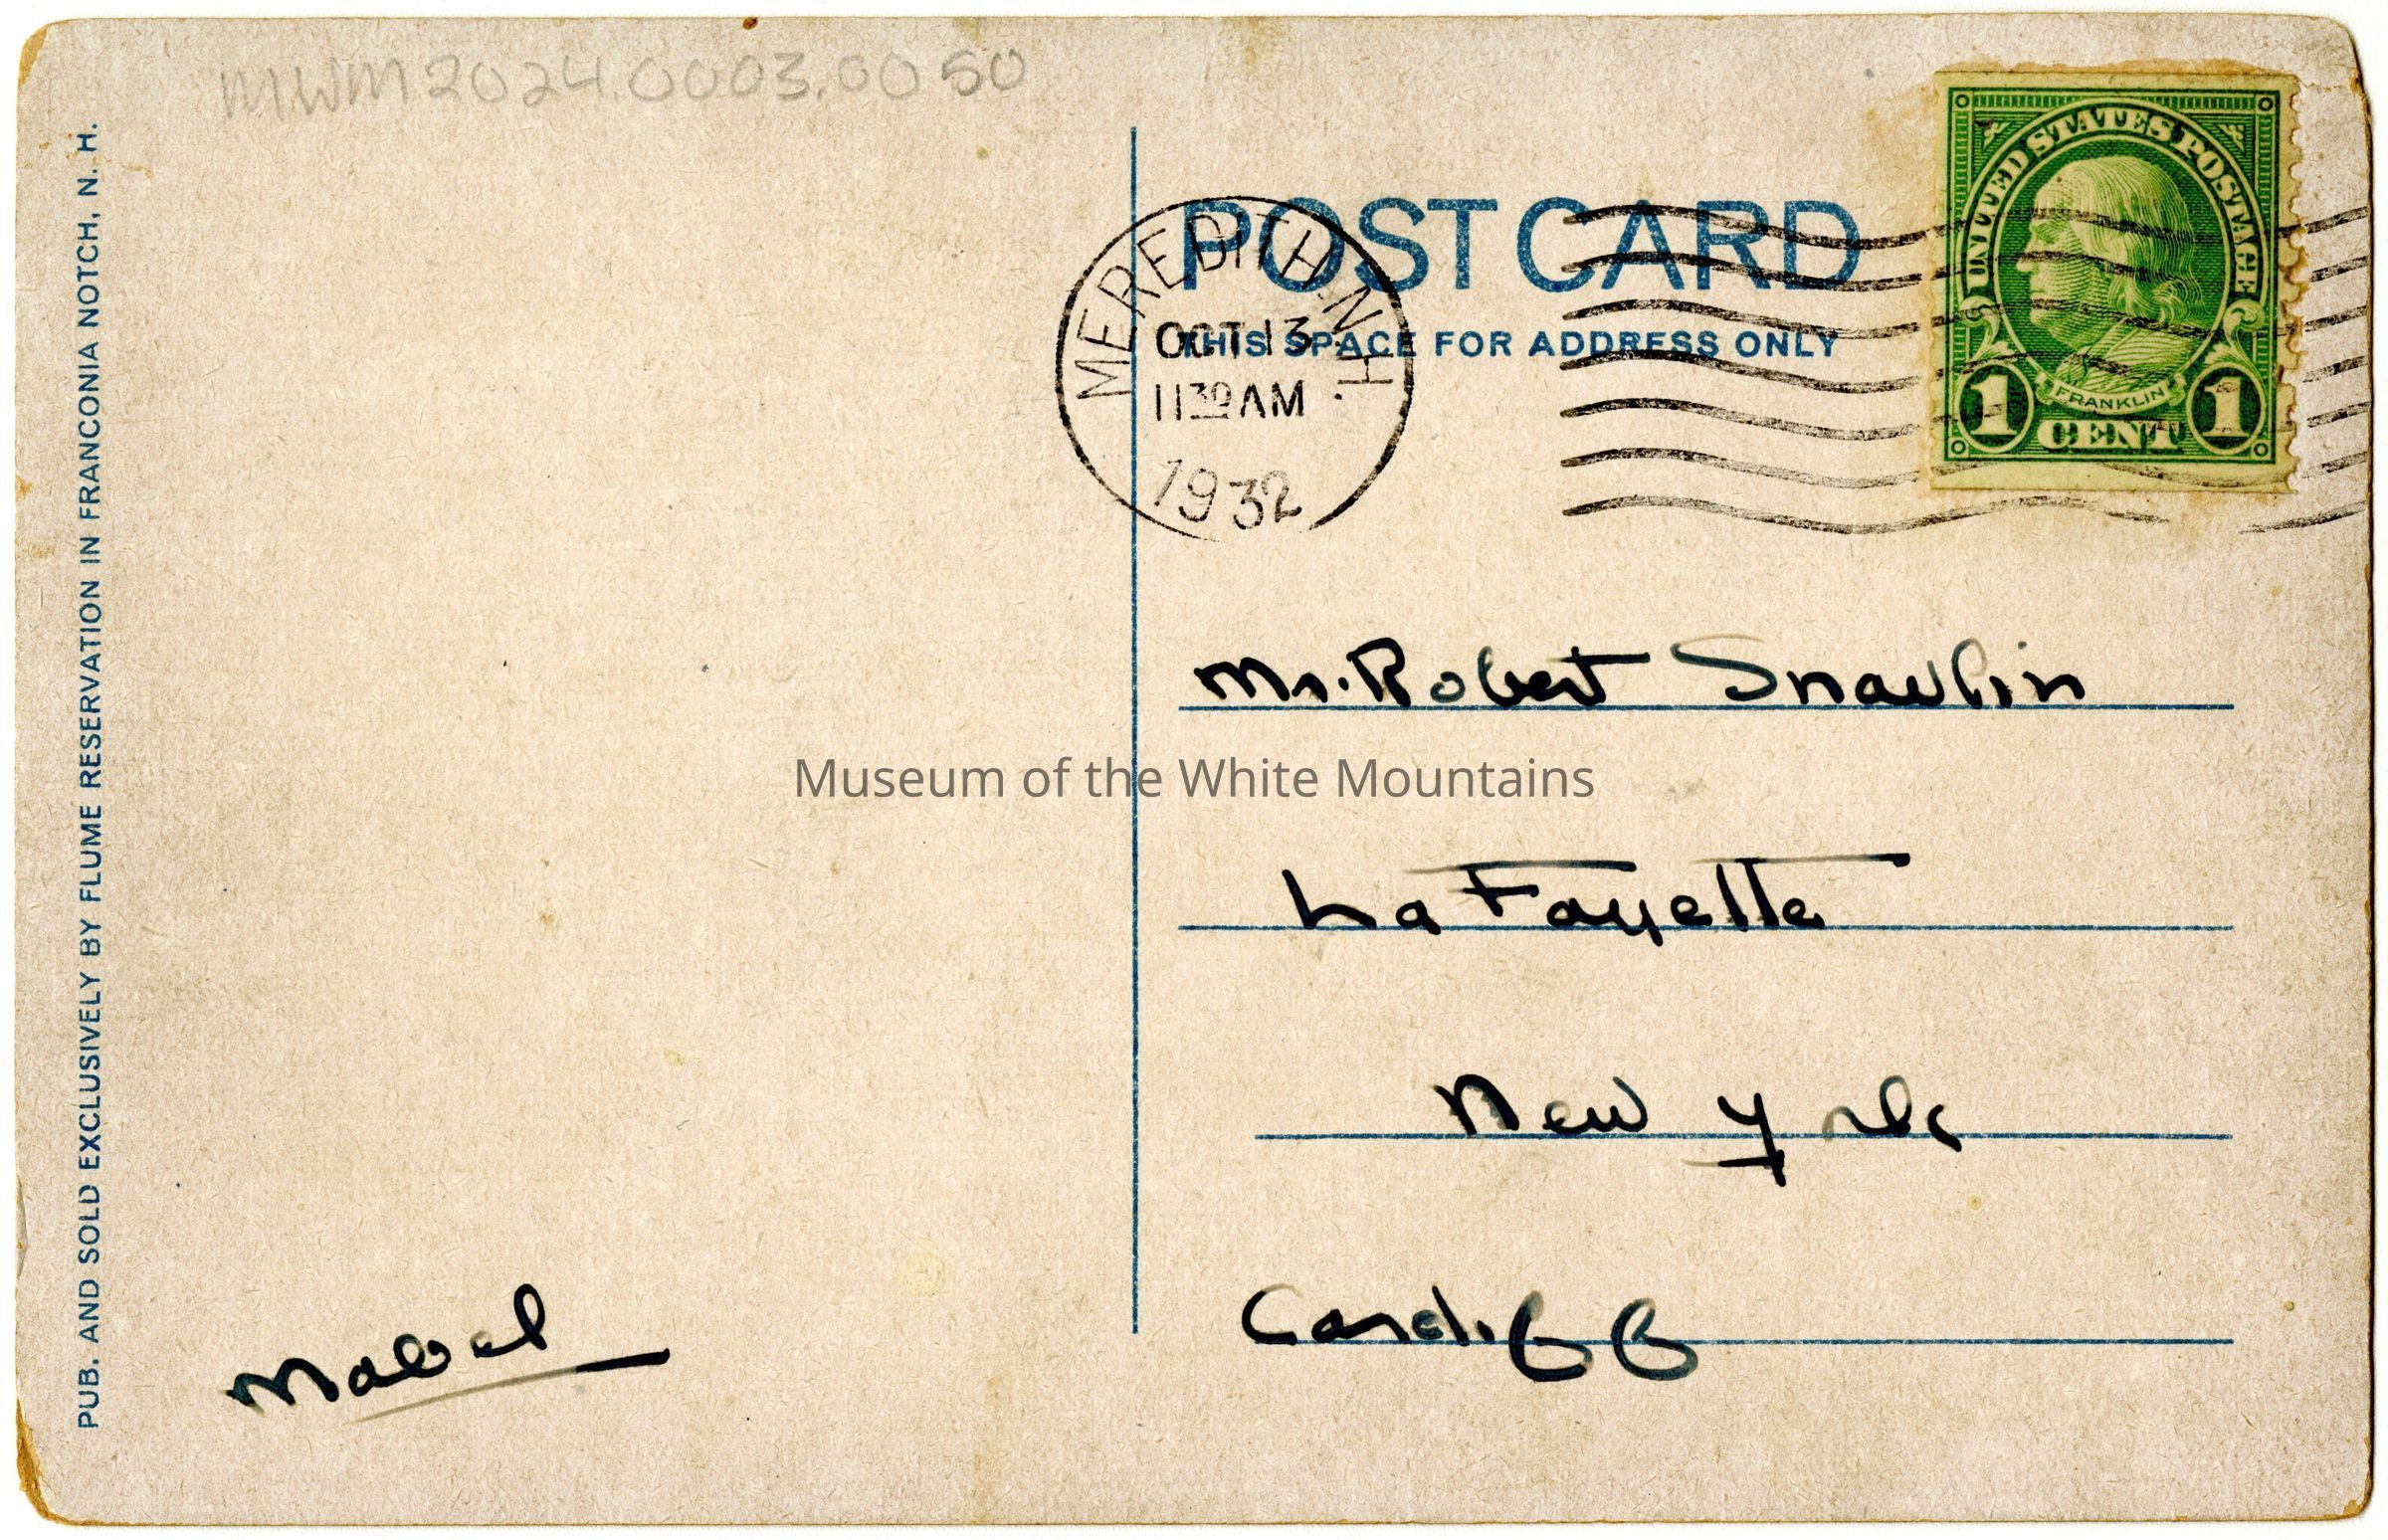 MWM2024.0003.0050
PUB. AND SOLD EXCLUSIVELY BY FLUME RESERVATION IN FRANCONIA NOTCH, N. H.
POST CARD
THIS SPACE FOR ADDRESS ONLY
MEREDITH. N. H.
OCT 13
11 30 AM
1932
UNITED STATES POSTAGE
FRANKLIN
1 CENT 1
Mr. Robert Snavlin
Museum of the White Mountains
La Fayette
New York
Cardiff
Mabel